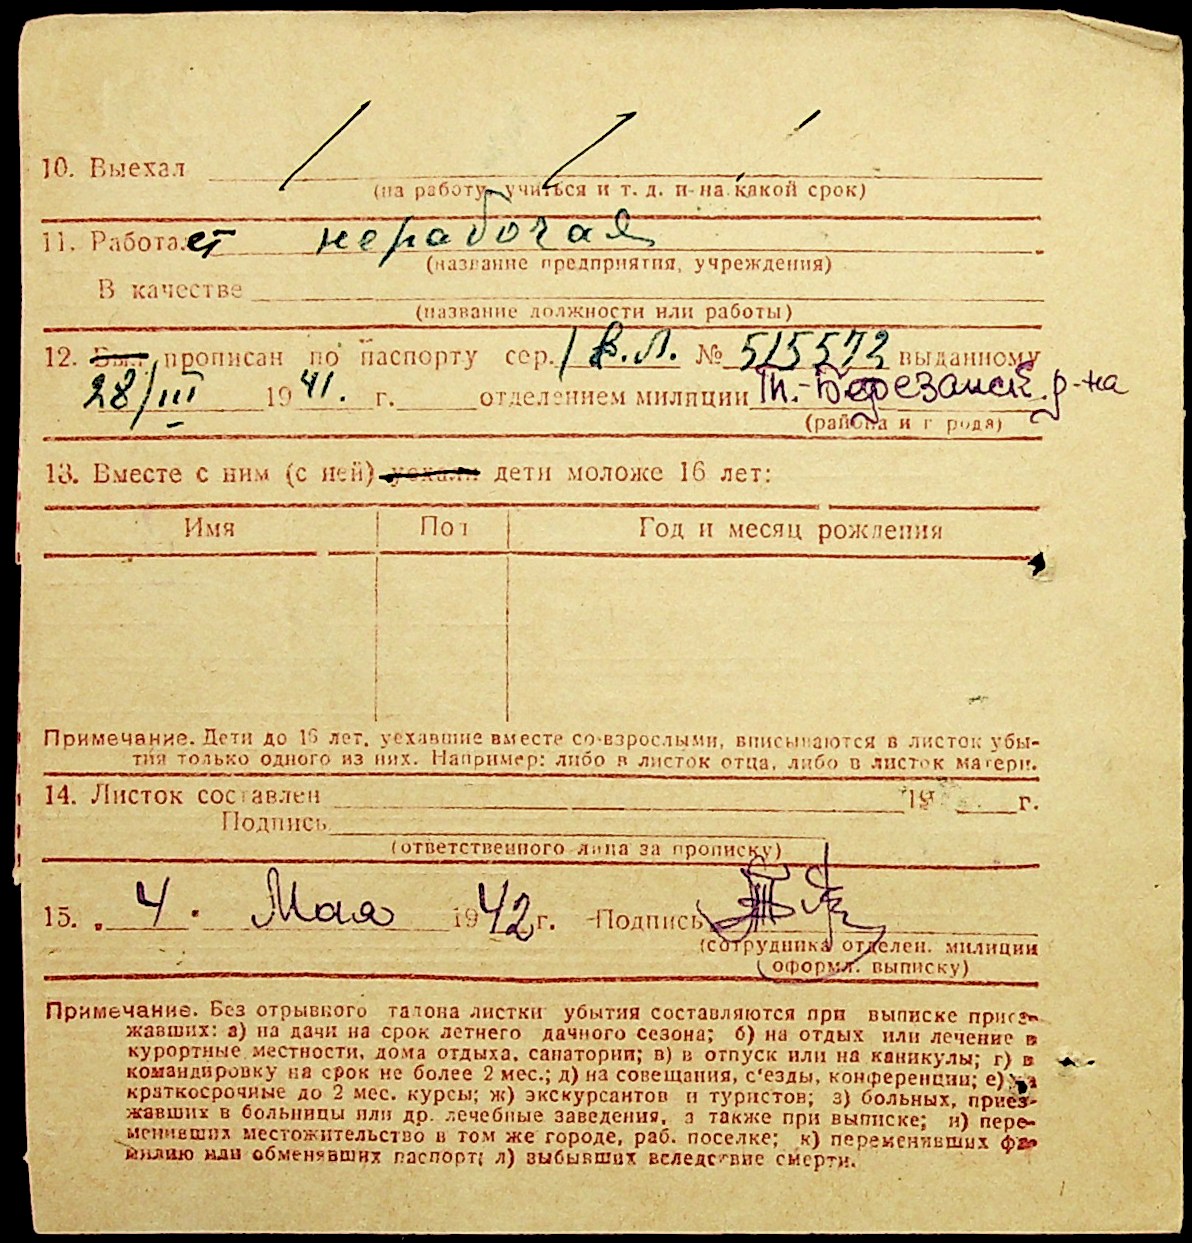 10. Выехал
(на работу, учиться и т. д. и на какой срок)
11. Работает нерабочая
(название предприятия, учреждения)
В качестве
(название должности или работы)
12. Был прописан по паспорту сер. I В.Л. № 515572 выданному
28/III 1941. г. отделением милиции Т.-Березанск. р-на
(района и города)
13. Вместе с ним (с ней) уехали дети моложе 16 лет:
Имя Пол Год и месяц рождения
Примечание. Дети до 16 лет, уехавшие вместе со взрослыми, вписываются в листок убы-
тия только одного из них. Например: либо в листок отца, либо в листок матери.
14. Листок составлен 19 г.
Подпись
(ответственного лица за прописку)
15. „ 4 " Мая 1942 г. Подпись
(сотрудника отделен. милиции
оформл. выписку)
Примечание. Без отрывного талона листки убытия составляются при выписке приез-
жавших: а) на дачи на срок летнего дачного сезона; б) на отдых или лечение в
курортные местности, дома отдыха, санатории; в) в отпуск или на каникулы; г) в
командировку на срок не более 2 мес.; д) на совещания, с'езды, конференции; е) на
краткосрочные до 2 мес. курсы; ж) экскурсантов и туристов; з) больных, приез-
жавших в больницы или др. лечебные заведения, а также при выписке; и) пере-
менивших местожительство в том же городе, раб. поселке; к) переменивших фа-
милию или обменявших паспорт; л) выбывших вследствие смерти.